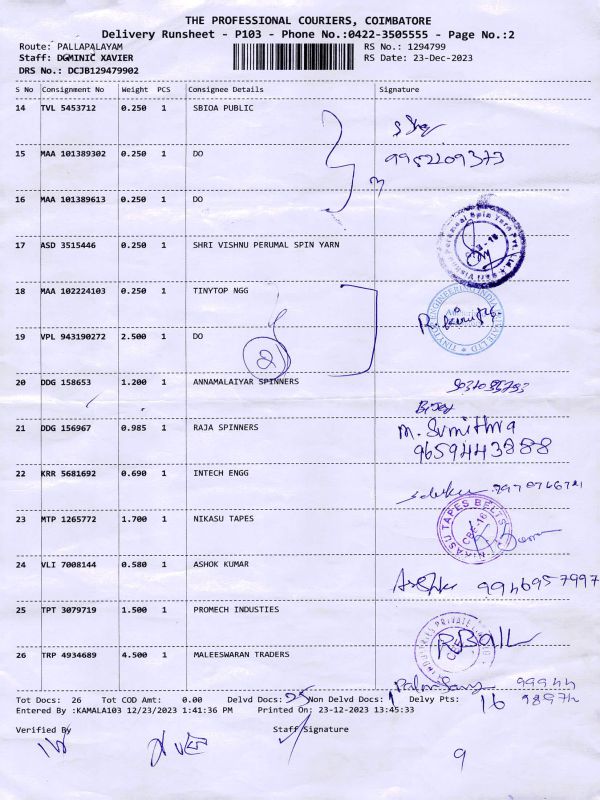 THE PROFESSIONAL COURIERS, COIMBATORE
Delivery Runsheet - P103 - Phone No.:0422-3505555 - Page No.:2
Route: PALLAPALAYAM RS No.: 1294799
Staff: DOMINIC XAVIER RS Date: 23-Dec-2023
DRS No.: DCJB129479902
S No Consignment No Weight PCS Consignee Details Signature
14 TVL 5453712 0.250 1 SBIOA PUBLIC
15 MAA 101389302 0.250 1 DO
16 MAA 101389613 0.250 1 DO
17 ASD 3515446 0.250 1 SHRI VISHNU PERUMAL SPIN YARN
18 MAA 102224103 0.250 1 TINYTOP NGG
19 VPL 943190272 2.500 1 DO
2
20 DDG 158653 1.200 1 ANNAMALAIYAR SPINNERS
21 DDG 156967 0.985 1 RAJA SPINNERS M. Sumithra
9659443888
22 KRR 5681692 0.690 1 INTECH ENGG
23 MTP 1265772 1.700 1 NIKASU TAPES NIKASU TAPES BELTS CBE-16
24 VLI 7008144 0.580 1 ASHOK KUMAR 9946957997
25 TPT 3079719 1.500 1 PROMECH INDUSTIES
26 TRP 4934689 4.500 1 MALEESWARAN TRADERS
Tot Docs: 26 Tot COD Amt: 0.00 Delvd Docs: 25 Non Delvd Docs: 1 Delvy Pts: 16
Entered By :KAMALA103 12/23/2023 1:41:36 PM Printed On: 23-12-2023 13:45:33
Verified By Staff Signature
9